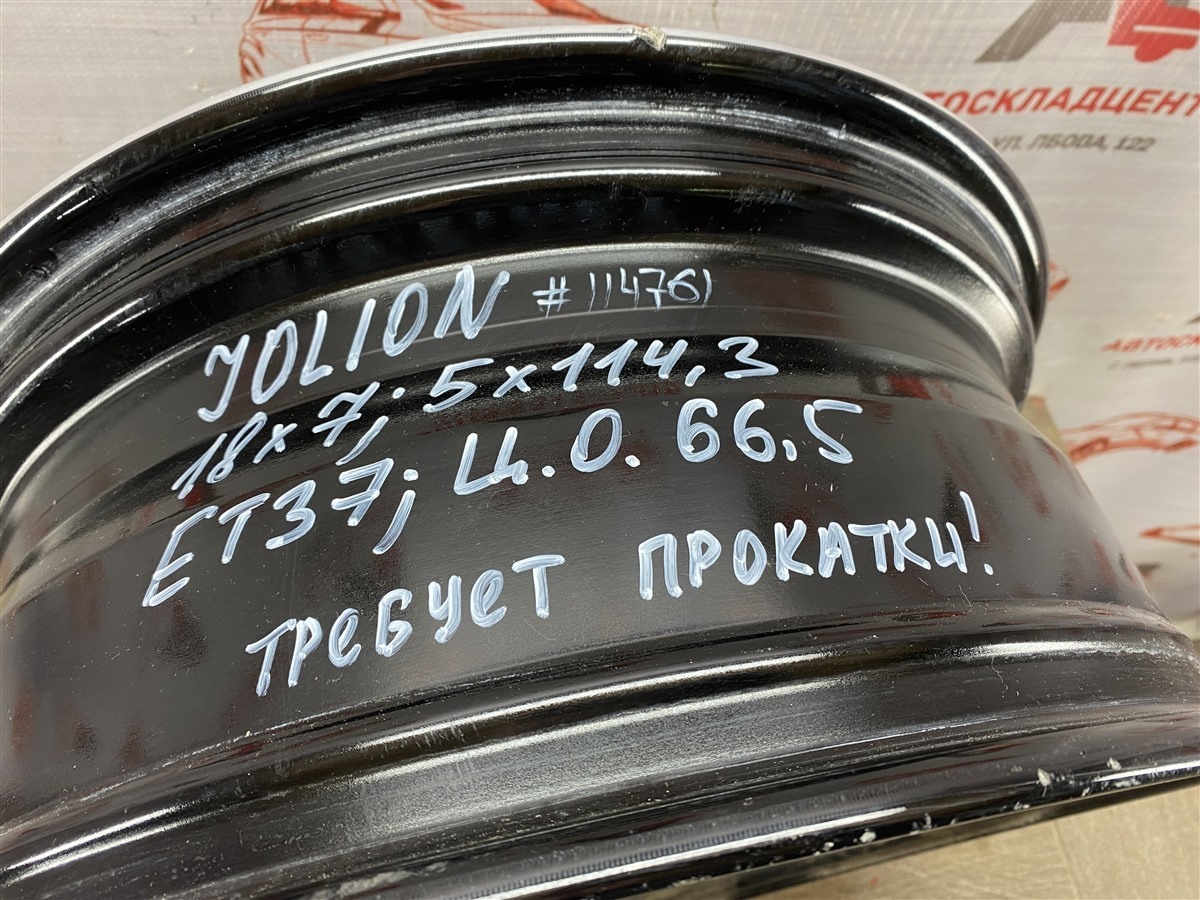 АВТОСКЛАДЦЕНТ
УЛ. ЛБОВА, 122
JOLION #114761
18x7; 5x114,3
ET37; Ц.О. 66,5
ТРЕБУЕТ ПРОКАТКИ!